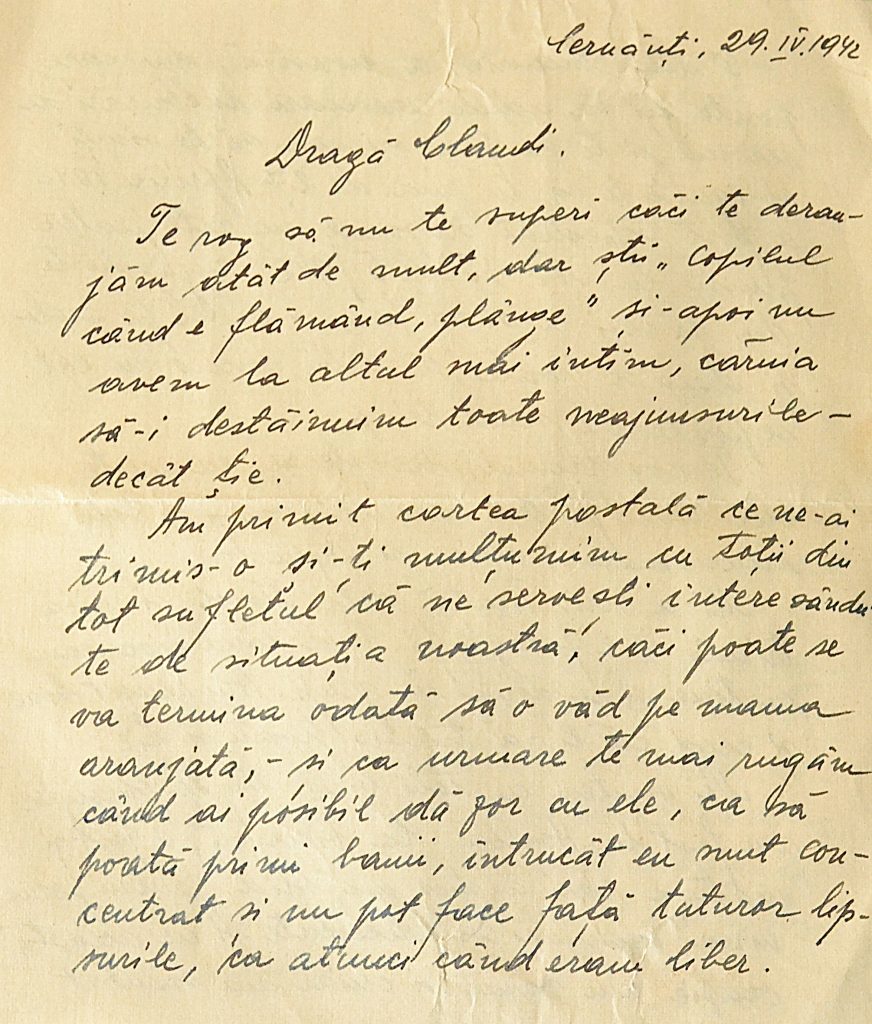 Cernăuți, 29.IV.1942
Dragă Claudi.
Te rog să nu te superi căci te deran-
jăm atât de mult, dar știi „Copilul
când e flămând, plânge” și-apoi nu
avem la altul mai intim, căruia
să-i destăinuim toate neajunsurile –
decât ție.
Am primit cartea poștală ce ne-ai
trimis-o și-ți mulțumim cu toții din
tot sufletul că ne servești interesându-
te de situația noastră, căci poate se
va termina odată să o văd pe mama
aranjată, - și ca urmare te mai rugăm
când ai posibil dă zor cu ele, ca să
poată primi banii, întrucât eu sunt con-
centrat și nu pot face față tuturor lip-
surile, ca atunci când eram liber.